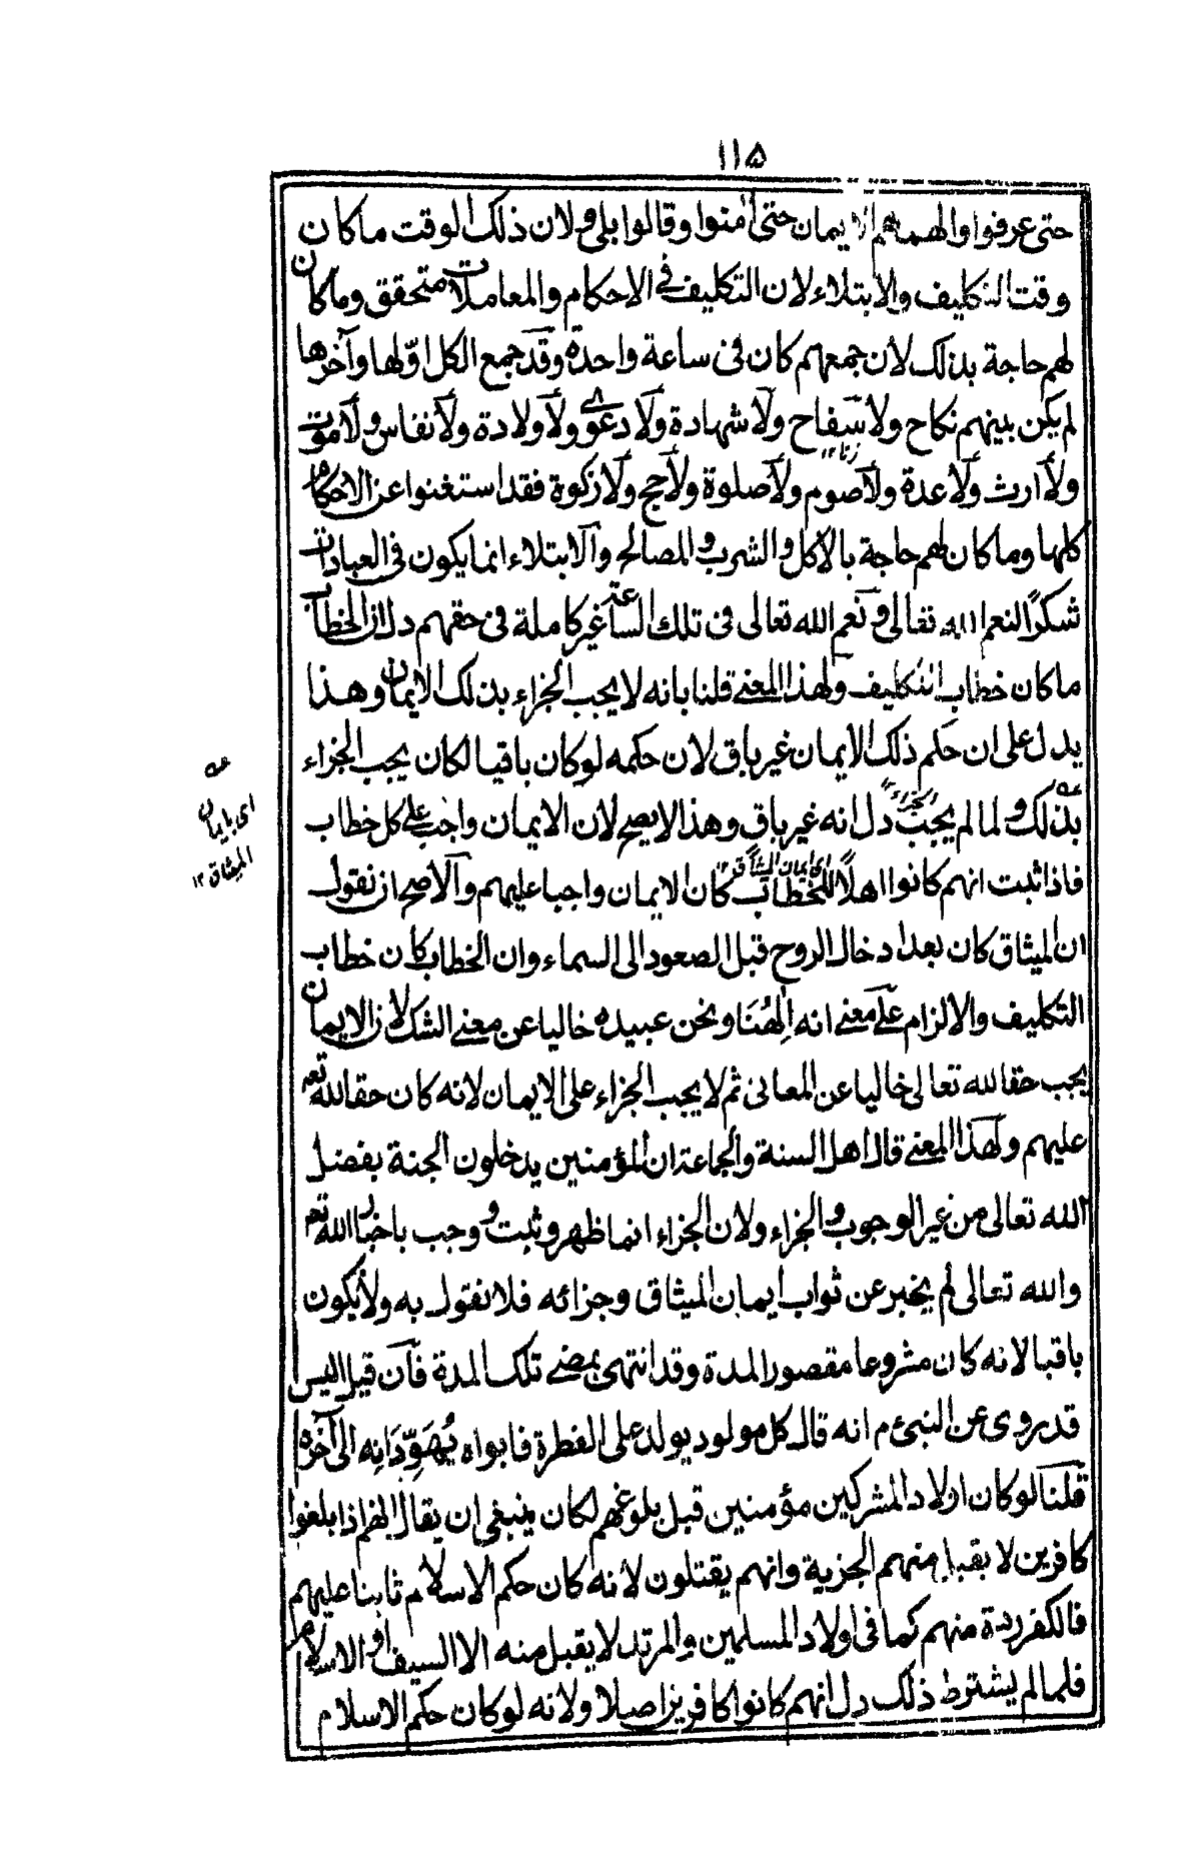 ١١۵
حتى عرفوا والهمهم الايمان حتى اٰمنوا وقالوا بلى ولان ذلك الوقت ما كان
وقت التكليف والابتلاء لان التكليف فى الاحكام والمعاملات متحقق وما كان
لهم حاجة بذلك لان جمعهم كان فى ساعة واحدة وقد جمع الكل اوّلها وآخرها
لم يكن بينهم نكاح ولا سفاح ولا شهادة ولا دعوى ولا ولادة ولا نفاس ولا موت
زنا ١٢
ولا ارث ولا عدة ولا صوم ولا صلوة ولا حج ولا زكوة فقد استغنوا عن الاحكام
كلها وما كان لهم حاجة بالاكل والشرب والمصالح والابتلاء انما يكون فى العبادات
شكرًا لنعم الله تعالى ونعم الله تعالى فى تلك الساعة غير كاملة فى حقهم دل ان الخطاب
ما كان خطاب التكليف ولهذا المعنى قلنا بانه لا يجب الجزاء بذلك الايمان وهذا
يدل على ان حكم ذلك الايمان غير باق لان حكمه لو كان باقيا لكان يجب الجزاء
بذلك ولما لم يجب دل انه غير باق وهذا لا يصح لان الايمان واجب على كل خطاب
الجزاء ١٢
عه
اى بايمان
الميثاق ١٢
فاذا ثبت انهم كانوا اهلاً للخطاب كان الايمان واجبا عليهم والاصح ان نقول
اى ايمان الميثاق ١٢
ان الميثاق كان بعد ادخال الروح قبل الصعود الى السماء وان الخطاب كان خطاب
التكليف والالزام على معنى انه الٰهُنَا ونحن عبيده خاليا عن معنى الشك لان الايمان
يجب حقا لله تعالى خاليا عن المعانى ثم لا يجب الجزاء على الايمان لانه كان حقا لله تعه
عليهم ولهذا المعنى قال اهل السنة والجماعة ان المؤمنين يدخلون الجنة بفضل
الله تعالى من غير الوجوب والجزاء ولان الجزاء انما ظهر وثبت ووجب باخبار الله تعه
والله تعالى لم يخبر عن ثواب ايمان الميثاق وجزائه فلا نقول به ولا يكون
باقيا لانه كان مشروعا مقصور المدة وقد انتهى بمضى تلك المدة فآن قيل اليس
قد روى عن النبى ء م انه قال كل مولود يولد على الفطرة فابواه يُهَوِّدَانِه الى آخره
قلنا لو كان اولاد المشركين مؤمنين قبل بلوغهم لكان ينبغى ان يقال انهم اذا بلغوا
كافرين لا يقبل منهم الجزية وانهم يقتلون لانه كان حكم الاسلام ثابتا عليهم
فالكفر ردة منهم كما فى اولاد المسلمين والمرتد لا يقبل منه الا السيف او الاسلام
فلما لم يشترط ذلك دل انهم كانوا كافرين اصلا ولانه لو كان حكم الاسلام